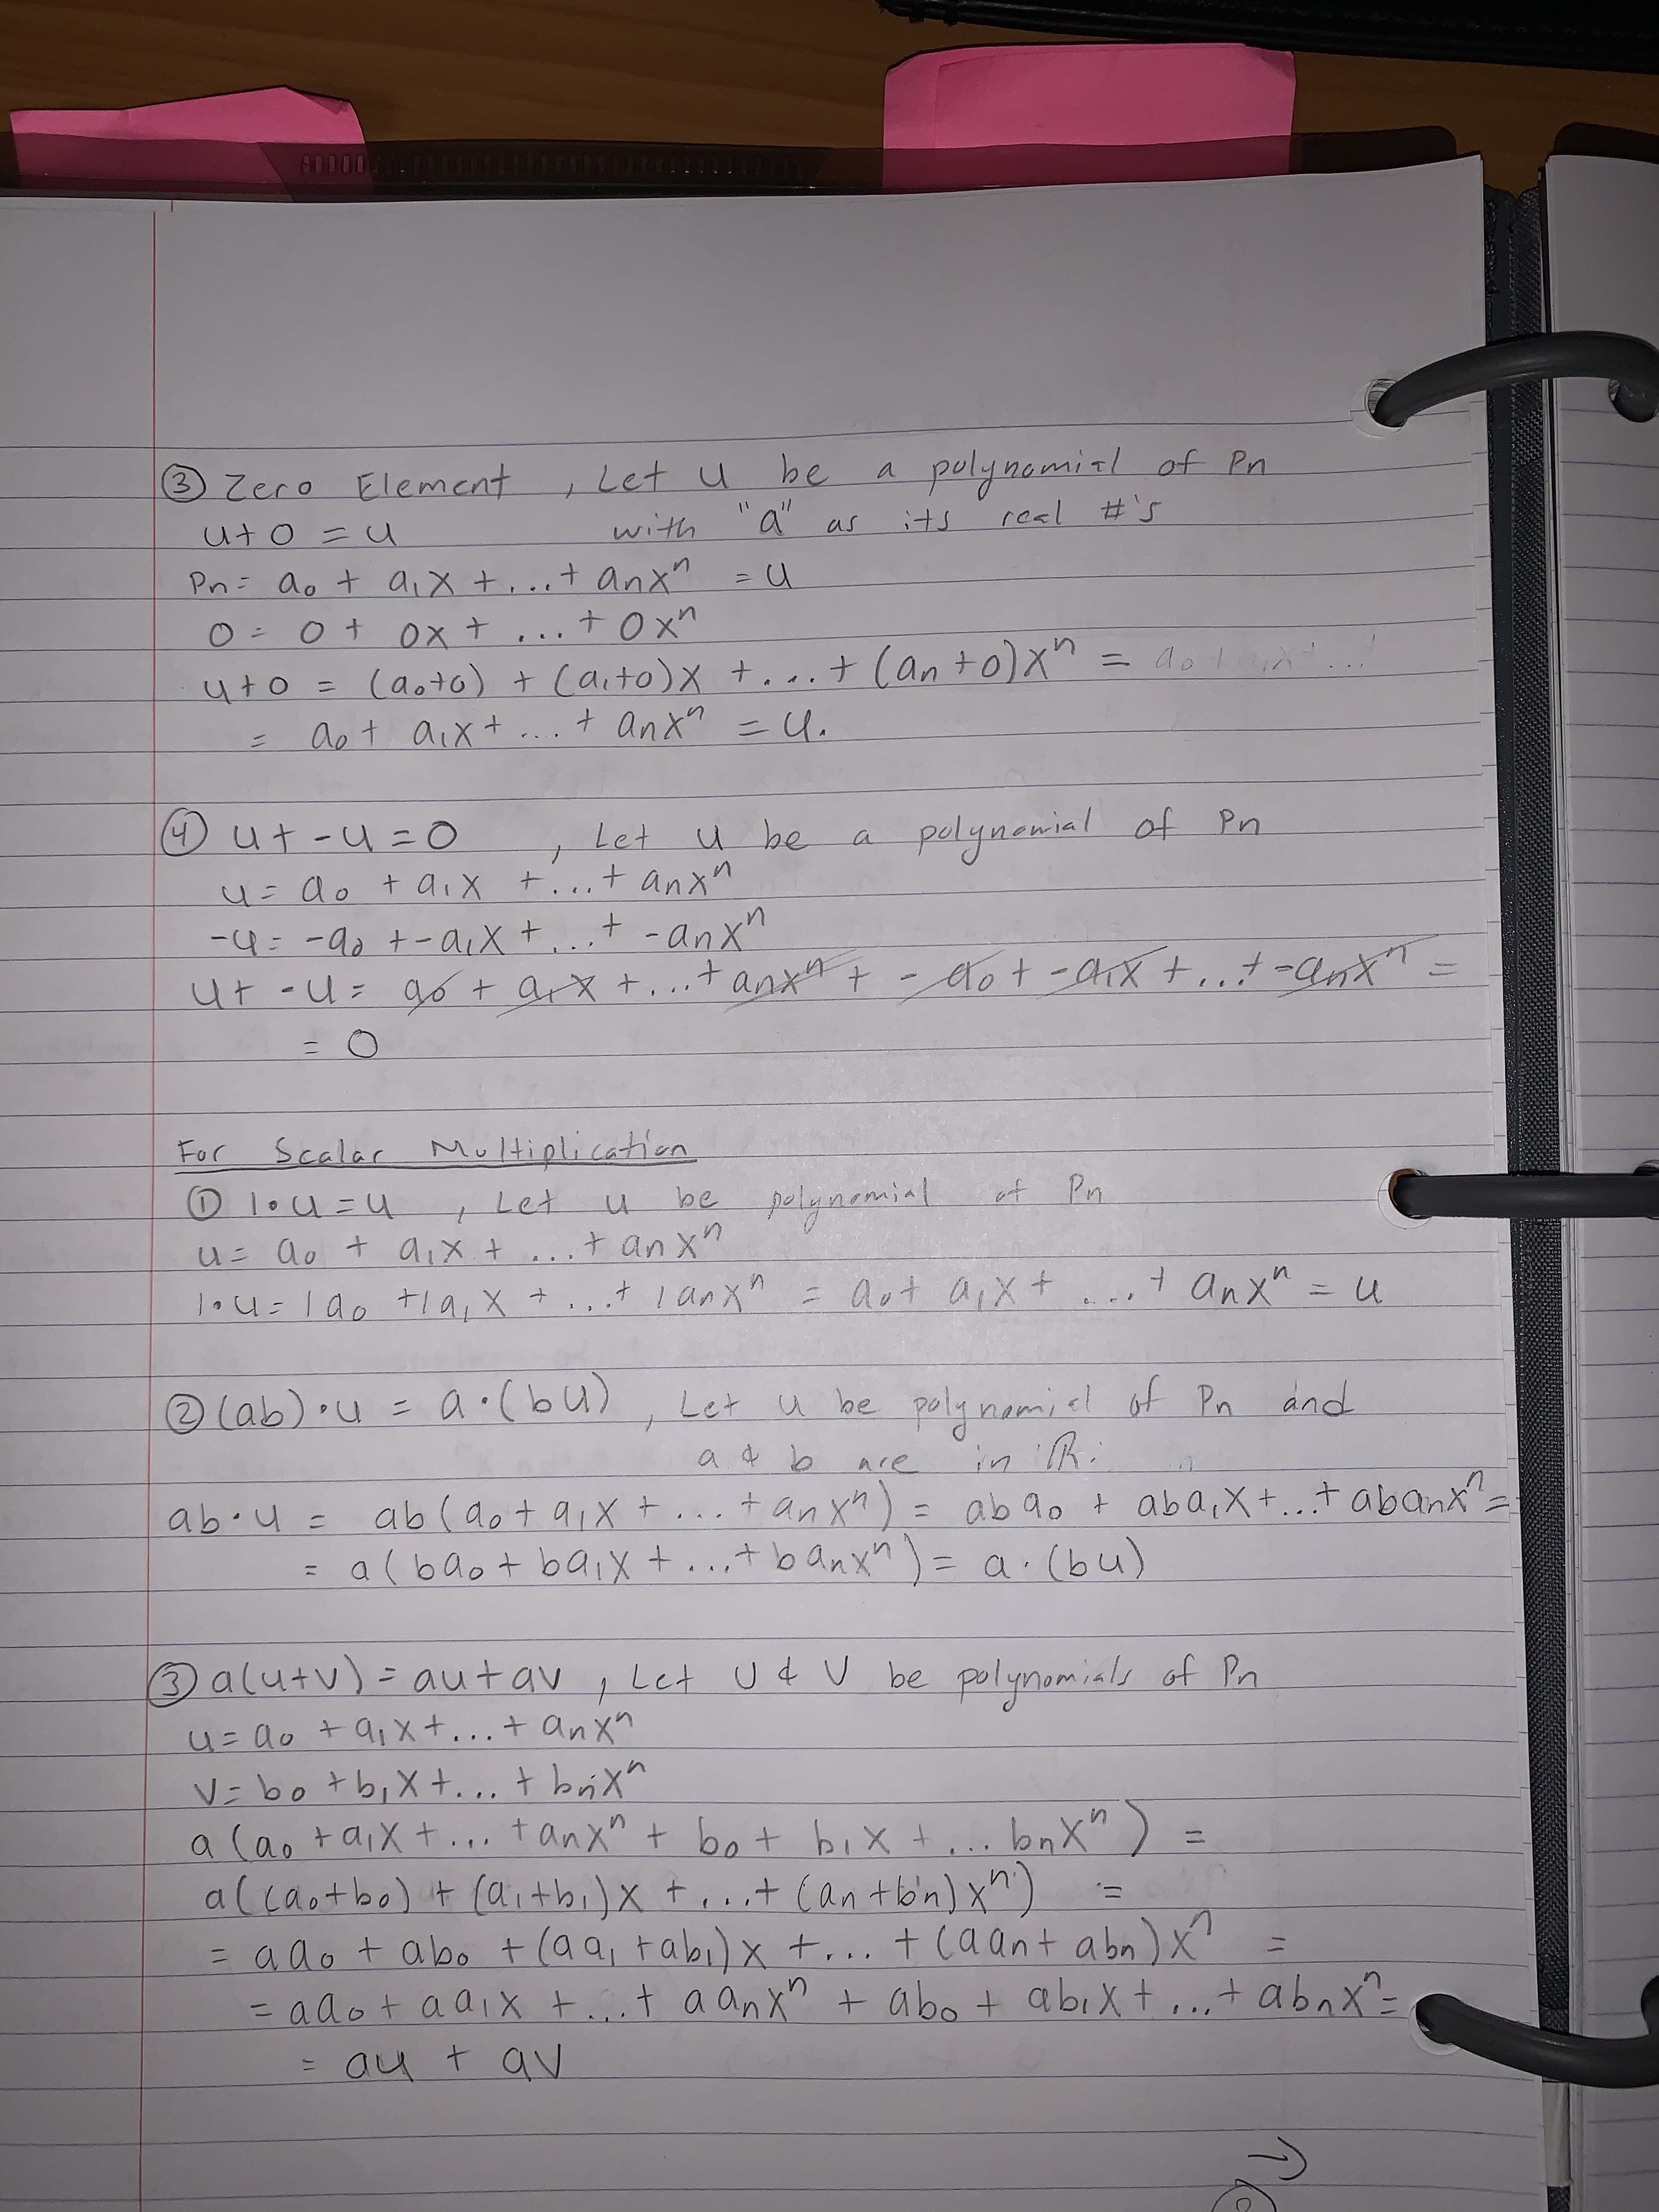 ③ Zero Element, Let u be a polynomial of Pn
u+0 = u with "a" as its real #'s
Pn = a₀ + a₁x + ... + aₙxⁿ = u
0 = 0 + 0x + ... + 0xⁿ
u+0 = (a₀+0) + (a₁+0)x + ... + (aₙ+0)xⁿ = a₀ + a₁x + ...
= a₀ + a₁x + ... + aₙxⁿ = u.
④ u + -u = 0 , Let u be a polynomial of Pn
u = a₀ + a₁x + ... + aₙxⁿ
-u = -a₀ + -a₁x + ... + -aₙxⁿ
u + -u = a₀ + a₁x + ... + aₙxⁿ + -a₀ + -a₁x + ... + -aₙxⁿ =
= 0
For Scalar Multiplication
① 1•u = u , Let u be polynomial of Pn
u = a₀ + a₁x + ... + aₙxⁿ
1•u = 1a₀ + 1a₁x + ... + 1aₙxⁿ = a₀ + a₁x + ... + aₙxⁿ = u
② (ab)•u = a•(bu) , Let u be polynomial of Pn and
a & b are in ℝ.
ab•u = ab(a₀ + a₁x + ... + aₙxⁿ) = aba₀ + aba₁x + ... + abaₙxⁿ =
= a(ba₀ + ba₁x + ... + baₙxⁿ) = a•(bu)
③ a(u+v) = au + av , Let U & V be polynomials of Pn
u = a₀ + a₁x + ... + aₙxⁿ
v = b₀ + b₁x + ... + bₙxⁿ
a(a₀ + a₁x + ... + aₙxⁿ + b₀ + b₁x + ... bₙxⁿ) =
a((a₀+b₀) + (a₁+b₁)x + ... + (aₙ+bₙ)xⁿ) =
= aa₀ + ab₀ + (aa₁ + ab₁)x + ... + (aaₙ + abₙ)xⁿ =
= aa₀ + aa₁x + ... + aaₙxⁿ + ab₀ + ab₁x + ... + abₙxⁿ =
= au + av
→